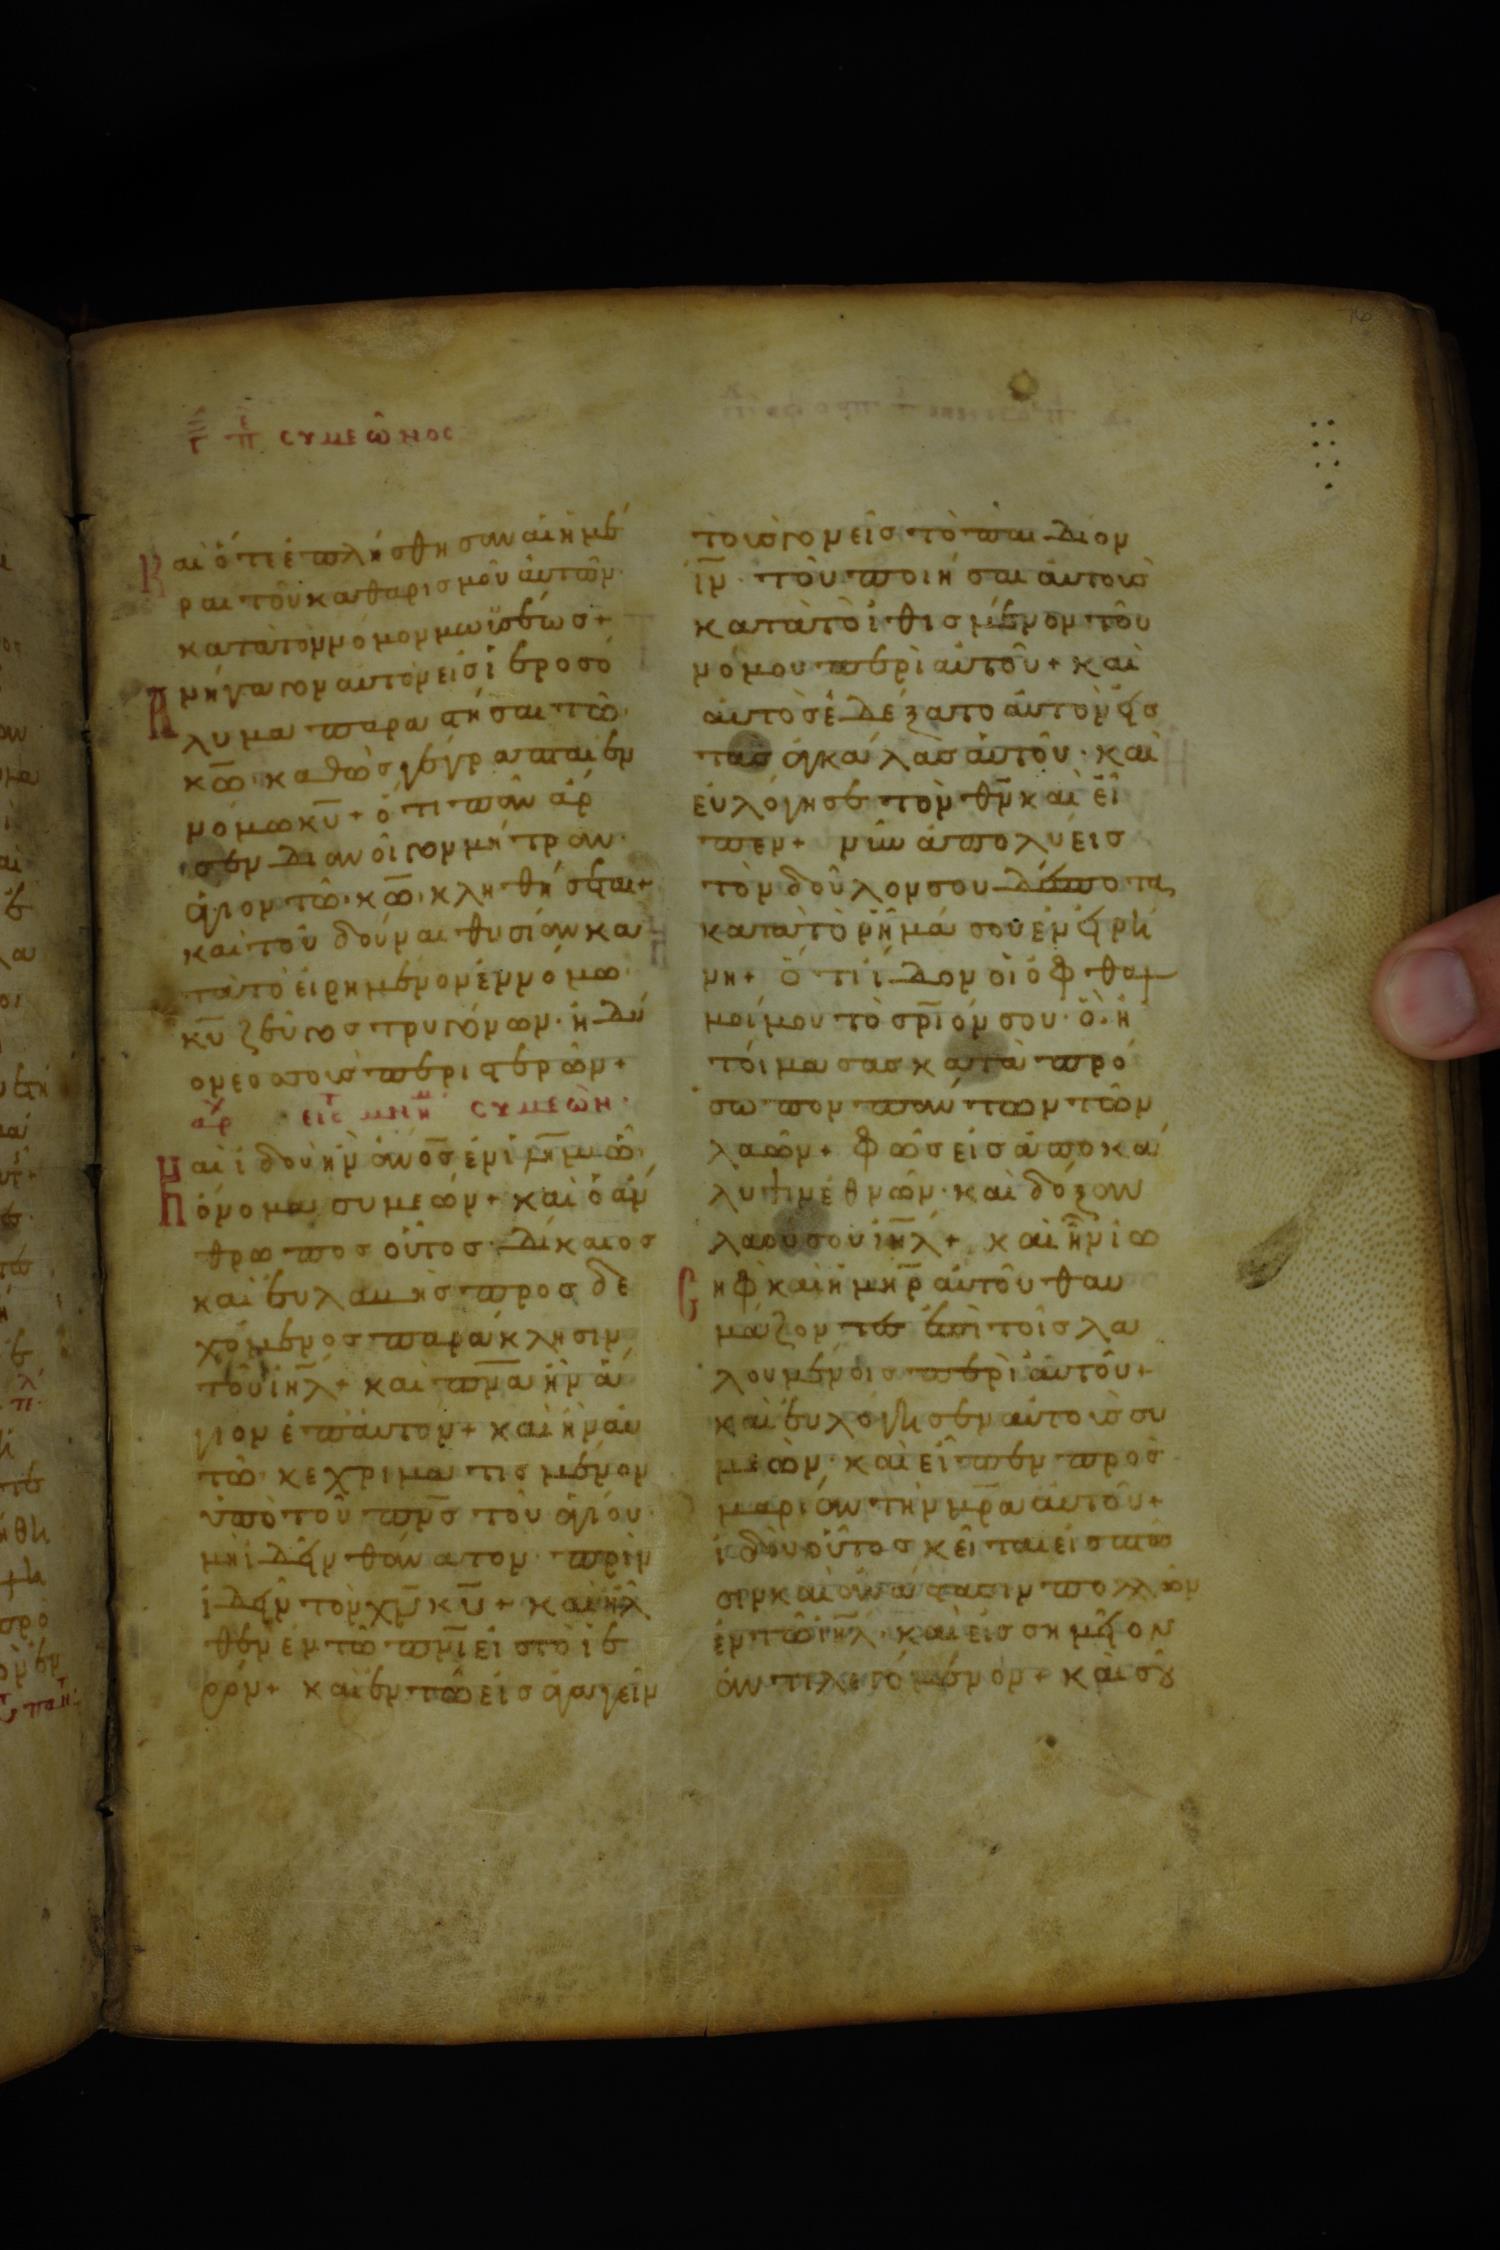 συμεῶνος
Και ὅτε ἐπλήσθησαν αἱ ἡμέ
ραι τοῦ καθαρισμοῦ αὐτῶν
κατὰ τὸν νόμον μωϋσέως +
Ανήγαγον αὐτὸν εἰς ἱεροσό
λυμα παραστῆσαι τῶ
κ̅ω̅· καθὼς γέγραπται ἐν
νόμω κ̅υ̅ + ὅτι πᾶν ἄρ
σεν διανοῖγον μήτραν·
ἅγιον τῶ κ̅ω̅ κληθήσεται +
καὶ τοῦ δοῦναι θυσίαν κα
τὰ τὸ εἰρημένον ἐν νόμω
κ̅υ̅ ζεῦγος τρυγόνων· ἢ δύ
ο νεοσσοὺς περιστερῶν +
συμεὼν·
Και ἰδοὺ ἦν ἀν̅ο̅ς ἐν ἰλ̅η̅μ ὧ
ὄνομα συμεών + καὶ ὁ ἄν
θρωπος οὗτος· δίκαιος
καὶ εὐλαβὴς προσδε
χόμενος παράκλησιν
τοῦ ἰη̅λ̅ + καὶ πν̅α̅ ἦν ἅ
γιον ἐπ' αὐτόν + καὶ ἦν αὐ
τῶ κεχρηματισμένον
ὑπὸ τοῦ πν̅ς̅ τοῦ ἁγίου·
μὴ ἰδεῖν θάνατον· πρὶν
ἰδεῖν τὸν χ̅ν̅ κ̅υ̅ + καὶ ἦλ
θεν ἐν τῶ πν̅ι̅ εἰς τὸ ἱε
ρόν + καὶ ἐν τῶ εἰσαγαγεῖν
τοὺς γονεῖς τὸ παιδίον
ι̅ν̅· τοῦ ποιῆσαι αὐτοὺς
κατὰ τὸ εἰθισμένον τοῦ
νόμου περὶ αὐτοῦ + καὶ
αὐτὸς ἐδέξατο αὐτὸν εἰς
τὰς ἀγκάλας αὐτοῦ· καὶ
εὐλόγησε τὸν θ̅ν̅ καὶ εἶ
πεν + νῦν ἀπολύεις
τὸν δοῦλον σου δέσποτα
κατὰ τὸ ῥῆμά σου ἐν εἰρή
νη + ὅτι ἴδον οἱ ὀφθαλ
μοί μου τὸ σ̅ρ̅ιόν σου· ὃ ἡ
τοίμασας κατὰ πρό
σωπον πάντων τῶν
λαῶν + φῶς εἰς ἀποκά
λυψιν ἐθνῶν· καὶ δόξαν
λαοῦ σου ἰη̅λ̅ + καὶ ἦν ἰω
σηφ καὶ ἡ μη̅ρ̅ αὐτοῦ θαυ
μάζοντες ἐπὶ τοῖς λα
λουμένοις περὶ αὐτοῦ +
καὶ εὐλόγησεν αὐτοὺς συ
μεὼν· καὶ εἶπεν πρὸς
μαριὰν τὴν μ̅ρ̅α αὐτοῦ +
ἰδοὺ οὗτος κεῖται εἰς πτῶ
σιν καὶ ἀνάστασιν πολλῶν
ἐν τῶ ἰη̅λ̅· καὶ εἰς σημεῖον
ἀντιλεγόμενον + καὶ σοῦ